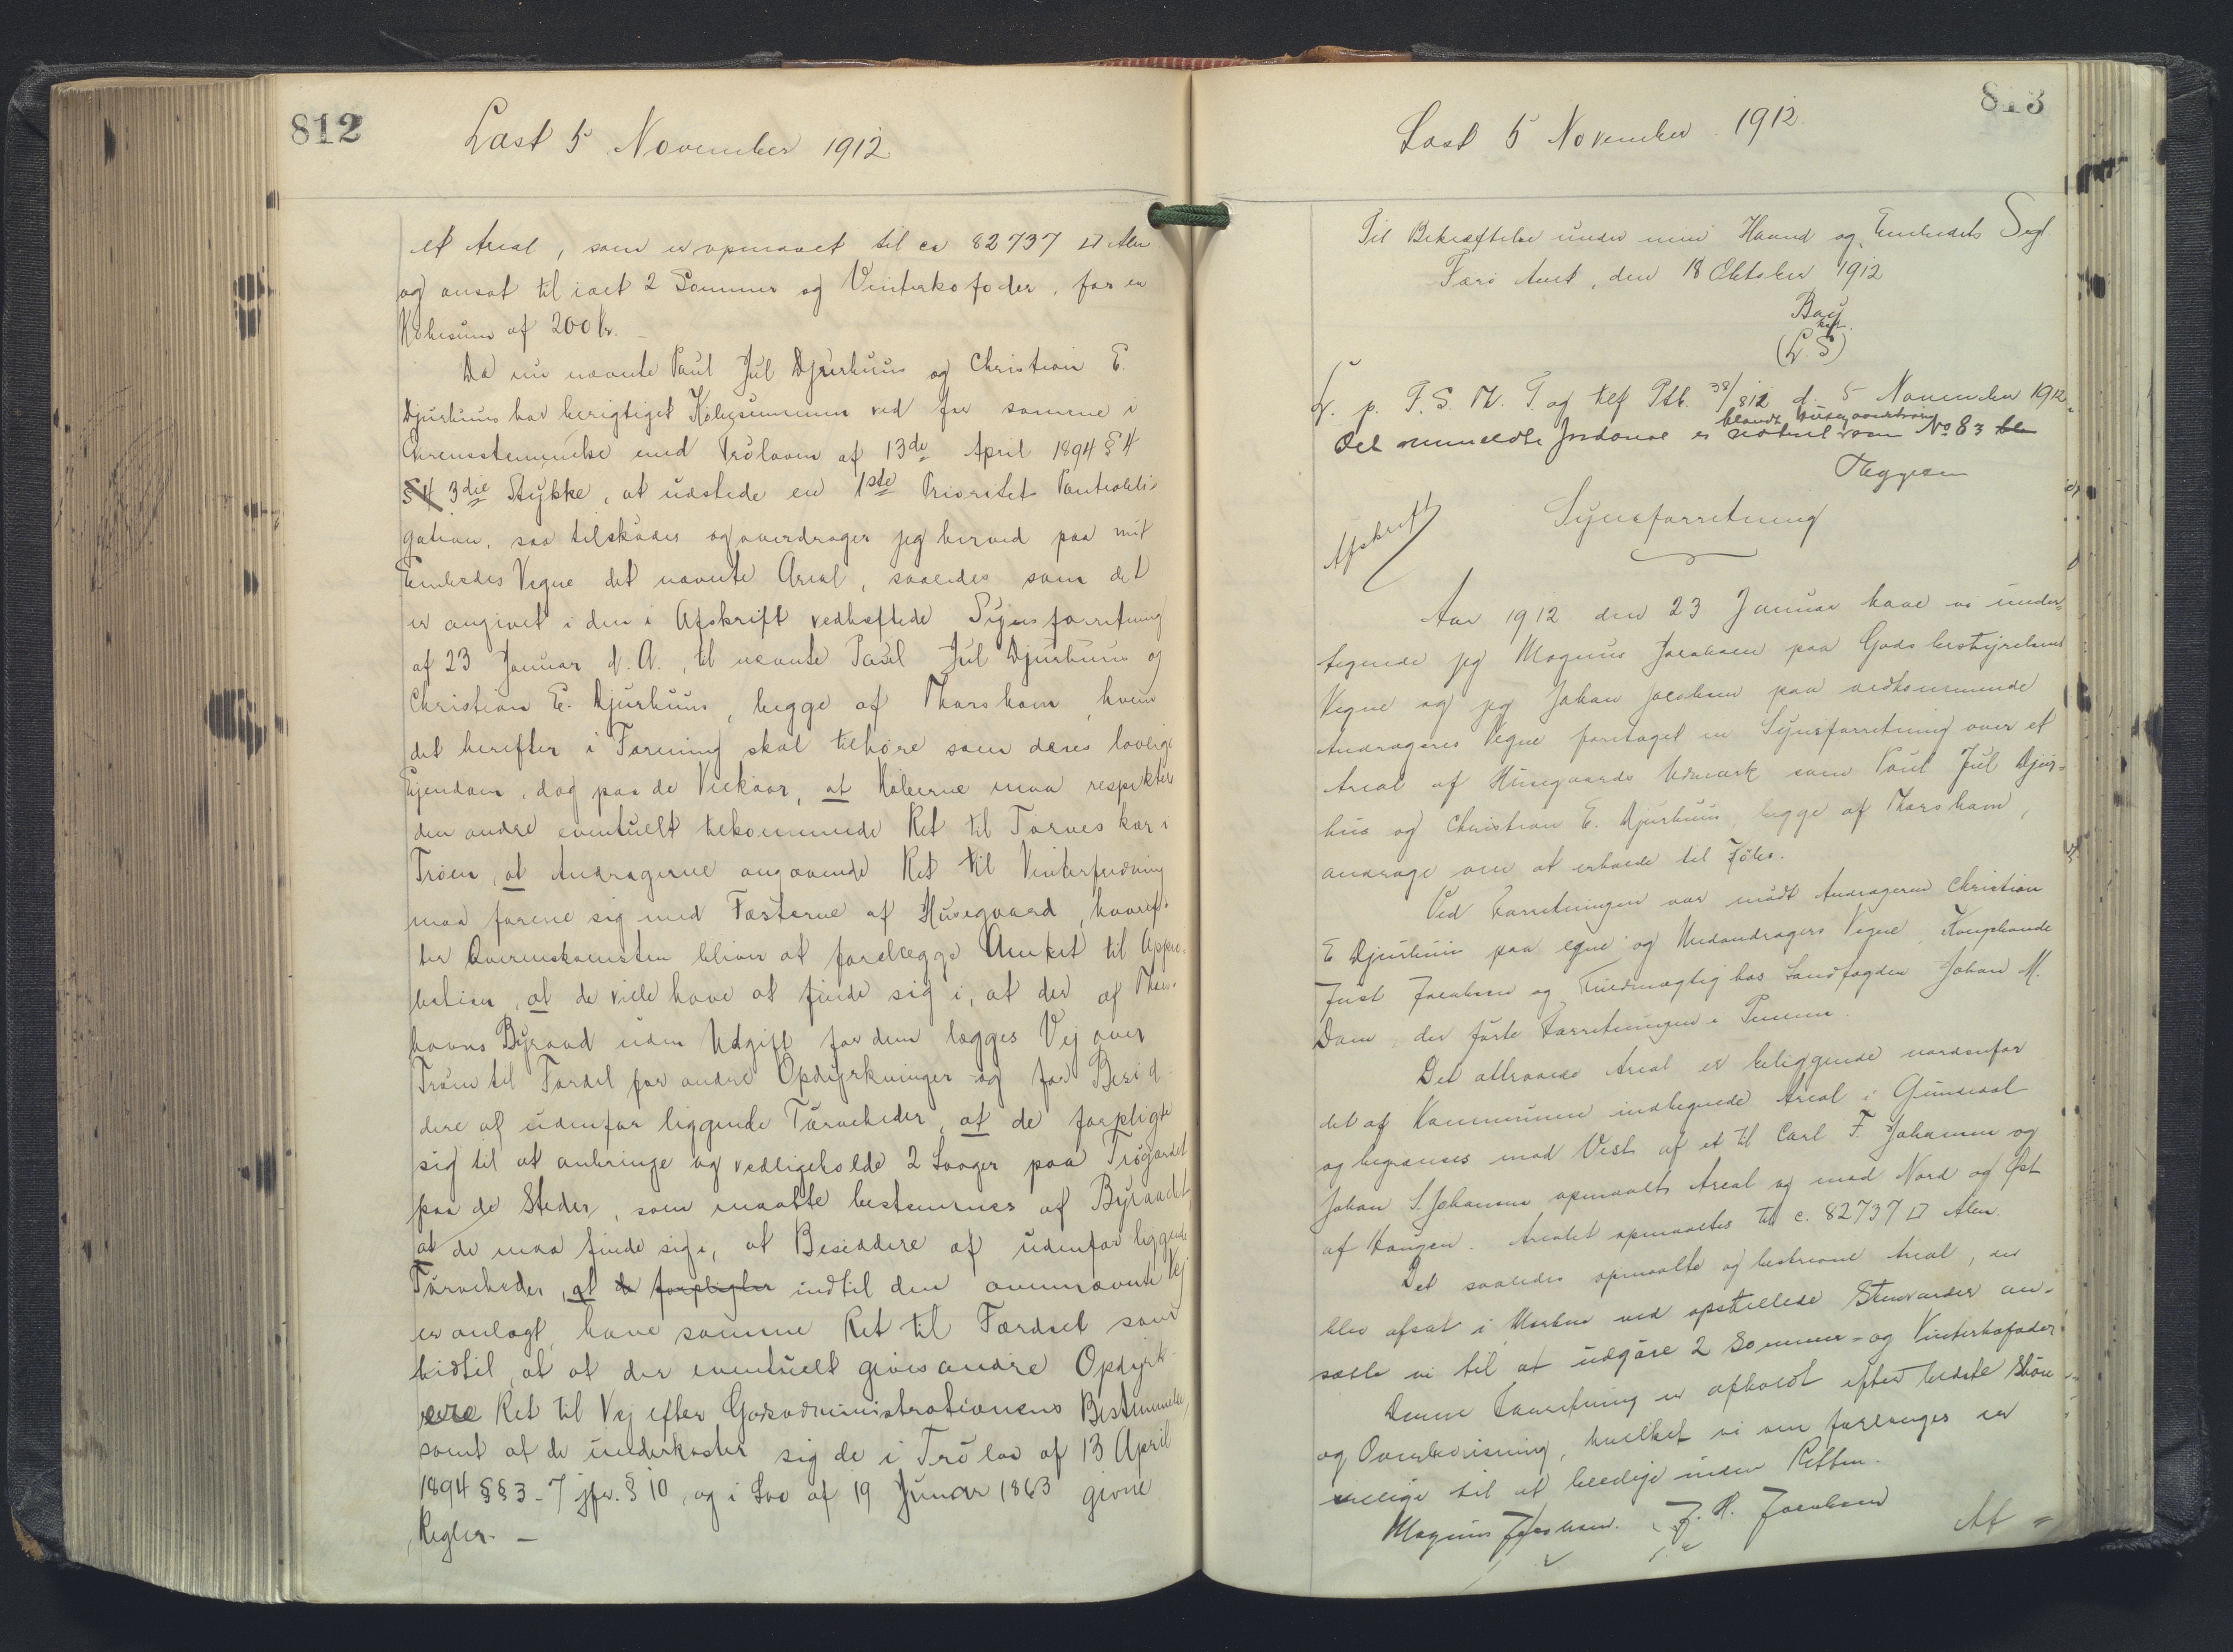 812
Læst 5 November 1912
et Areal, som er opmaalt til ca 82737 □ Alen
og ansat til ialt 2 Sommer og Vinterkofoder, for en
Købesum af 200 Kr. —
Da nu nævnte Poul Jul Djurhuus og Christian E.
Djurhuus har berigtiget Købesummen ved for samme i
Overensstemmelse med Trøloven af 13de April 1894 § 4
§ 4 3die Stykke, at udstede en 1ste Prioritets Pantobli-
gation, saa tilskøder og overdrager jeg herved paa mit
Embedes Vegne det nævnte Areal, saaledes som det
er angivet i den i Afskrift vedhæftede Synsforretning
af 23 Januar d. A., til nævnte Poul Jul Djurhuus og
Christian E. Djurhuus, begge af Thorshavn, hvem
det herefter i Forening skal tilhøre som deres lovlige
Ejendom, dog paa de Vilkaar, at Køberne maa respektere
den andre eventuelt tilkommende Ret til Tørveskær i
Trøen, at Andragerne angaaende Ret til Vinterfodring
maa forene sig med Fæsterne af Husegaard, hvoref-
ter Overenskomsten bliver at forelægge Amtet til Appro-
bation, at de ville have at finde sig i, at der af Thors-
havns Byraad uden Udgift for dem lægges Vej over
Trøen til Fordel for andre Opdyrkninger og for Besid-
dere af udenfor liggende Tørveheder, at de forpligte
sig til at anbringe og vedligeholde 2 Laager paa Trøgærdet
paa de Steder, som maatte bestemmes af Byraadet,
at de maa finde sig i, at Besiddere af udenfor liggende
Tørveheder, at de forpligter indtil den ovennævnte Vej
er anlagt, have samme Ret til Færdsel som
hidtil, at at der eventuelt gives andre Opdyrk-
ere Ret til Vej efter Godsadministrationens Bestemmelse,
samt at de underkaster sig de i Trølov af 13 April
1894 §§ 3-7 jfr. § 10, og i Lov af 19 Januar 1863 givne
Regler. —
813
Læst 5 November 1912.
Til Bekræftelse under min Haand og Embedets Segl.
Færø Amt, den 18 Oktober 1912
Bay
kst.
(L. S)
L. p. F. S. Th. T. og tlf Ptb. 38/812 d. 5 November 1912.
blandt Husegaardstrøer
Det anmeldte Jordareal er noteret som No 83 bla
Afskrift
Synsforretning
Aar 1912 den 23 Januar have vi under-
tegnede jeg Magnus Jacobsen paa Godsbestyrelsens
Vegne og jeg Johan Jacobsen paa vedkommende
Andrageres Vegne foretaget en Synsforretning over et
Areal af Husegaards Udmark som Poul Jul Djur-
huus og Christian E. Djurhuus, begge af Thorshavn,
andrage om at erholde til Købs.
Ved Forretningen var mødt Andrageren Christian
E Djurhuus paa egne og Medandragers Vegne, Kongsbonde
Just Jacobsen og Fuldmægtig hos Landfogden Johan M.
Dam, der førte Forretningen i Pennen.
Det attraaede Areal er beliggende nordenfor
det af Kommunen indhegnede Areal i Gundadal
og begrænses mod Vest af et til Carl F. Johansen og
Johan S. Johansen opmaalt Areal og mod Nord og Øst
af Haugen. Arealet opmaaltes til c. 82737 □ Alen.
Det saaledes opmaalte og beskrevne Areal, der
blev afsat i Marken ved opstillede Stenvarder an-
satte vi til at udgøre 2 Sommer- og Vinterkofoder.
Denne Forretning er afholdt efter bedste Skøn
og Overbevisning, hvilket vi om forlanges er
villige til at beedige inden Retten.
Magnus Jacobsen. J. H. Jacobsen
Af =